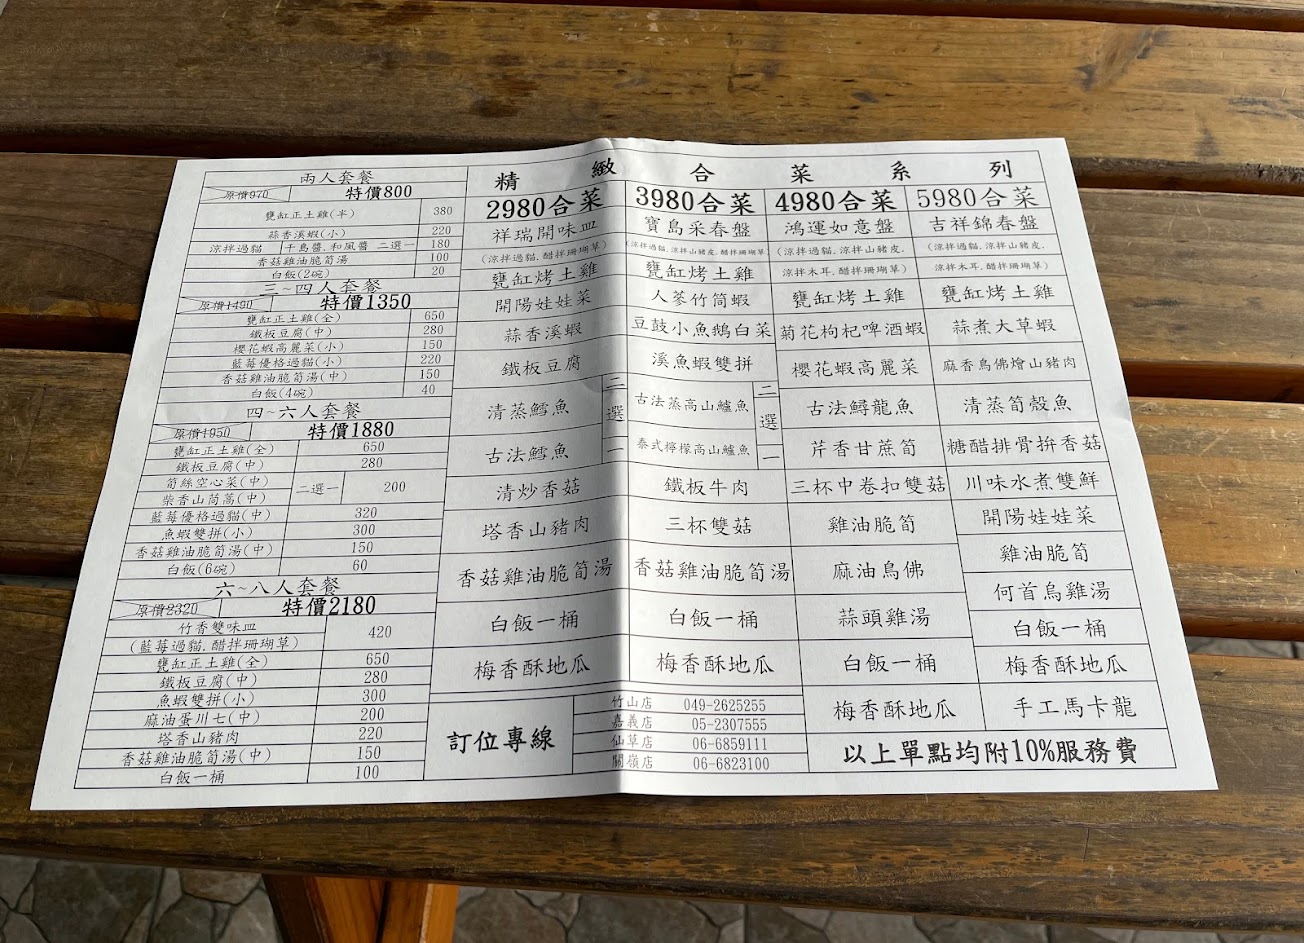 兩人套餐
原價970 特價800
甕缸正土雞(半) 380
蒜香溪蝦(小) 220
涼拌過貓 千島醬.和風醬 二選一 180
香菇雞油脆筍湯 100
白飯(2碗) 20
三~四人套餐
原價1490 特價1350
甕缸正土雞(全) 650
鐵板豆腐(中) 280
櫻花蝦高麗菜(小) 150
藍莓優格過貓(小) 220
香菇雞油脆筍湯(中) 150
白飯(4碗) 40
四~六人套餐
原價1950 特價1880
甕缸正土雞(全) 650
鐵板豆腐(中) 280
筍絲空心菜(中)
柴香山茼蒿(中)
二選一 200
藍莓優格過貓(中) 320
魚蝦雙拼(小) 300
香菇雞油脆筍湯(中) 150
白飯(6碗) 60
六~八人套餐
原價2320 特價2180
竹香雙味皿
(藍莓過貓.醋拌珊瑚草)
420
甕缸正土雞(全) 650
鐵板豆腐(中) 280
魚蝦雙拼(小) 300
麻油蛋川七(中) 200
塔香山豬肉 220
香菇雞油脆筍湯(中) 150
白飯一桶 100
精緻合菜系列
2980合菜
祥瑞開味皿
(涼拌過貓.醋拌珊瑚草)
甕缸烤土雞
開陽娃娃菜
蒜香溪蝦
鐵板豆腐
清蒸鱈魚
古法鱈魚
二選一
清炒香菇
塔香山豬肉
香菇雞油脆筍湯
白飯一桶
梅香酥地瓜
3980合菜
寶島采春盤
(涼拌過貓.涼拌山豬皮.醋拌珊瑚草)
甕缸烤土雞
人蔘竹筒蝦
豆鼓小魚鵝白菜
溪魚蝦雙拼
古法蒸高山鱸魚
泰式檸檬高山鱸魚
二選一
鐵板牛肉
三杯雙菇
香菇雞油脆筍湯
白飯一桶
梅香酥地瓜
4980合菜
鴻運如意盤
(涼拌過貓.涼拌山豬皮.
涼拌木耳.醋拌珊瑚草)
甕缸烤土雞
菊花枸杞啤酒蝦
櫻花蝦高麗菜
古法鱘龍魚
芹香甘蔗筍
三杯中卷扣雙菇
雞油脆筍
麻油鳥佛
蒜頭雞湯
白飯一桶
梅香酥地瓜
5980合菜
吉祥錦春盤
(涼拌過貓.涼拌山豬皮.
涼拌木耳.醋拌珊瑚草)
甕缸烤土雞
蒜煮大草蝦
麻香鳥佛燴山豬肉
清蒸筍殼魚
糖醋排骨拚香菇
川味水煮雙鮮
開陽娃娃菜
雞油脆筍
何首烏雞湯
白飯一桶
梅香酥地瓜
手工馬卡龍
訂位專線
竹山店 049-2625255
嘉義店 05-2307555
仙草店 06-6859111
關嶺店 06-6823100
以上單點均附10%服務費